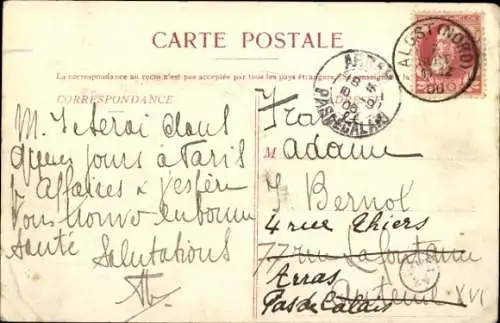 CARTE POSTALE
La correspondance au recto n'est pas acceptée par tous les pays étrangers
CORRESPONDANCE
M. Je serai dans
quelques jours à Paris
p affaires & j'espère
vous trouver en bonne
santé Salutations
ALOST (NORD)
ARRAS
PAS DE CALAIS
M adame
J Bernot
4 rue Thiers
77 rue Lafontaine
Arras
Pas de Calais
Auteuil XVI